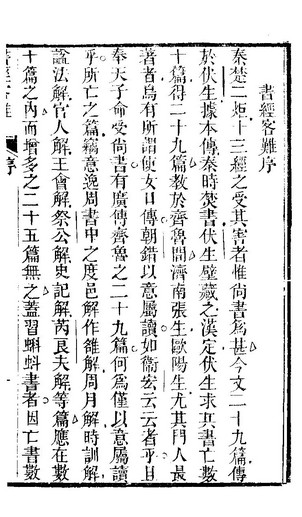 書經客難序
秦楚二炬十三經之受其害者惟尚書為甚今文二十九篇傳
於伏生據本傳秦時焚書伏生壁藏之漢定伏生求其書亡數
十篇得二十九篇教於齊魯間濟南張生歐陽生尤其門人最
著者烏有所謂使女口傳朝錯以意屬讀如衞宏云云者乎且
奉天子命受尚書有廣傳齊魯之二十九篇何為僅以意屬讀
乎所亡之篇竊意逸周書中之度邑解作雒解周月解時訓解
諡法解官人解王會解祭公解史記解芮良夫解等篇應在數
十篇之內而增多之二十五篇無之蓋習蝌蚪書者因亡書數
序